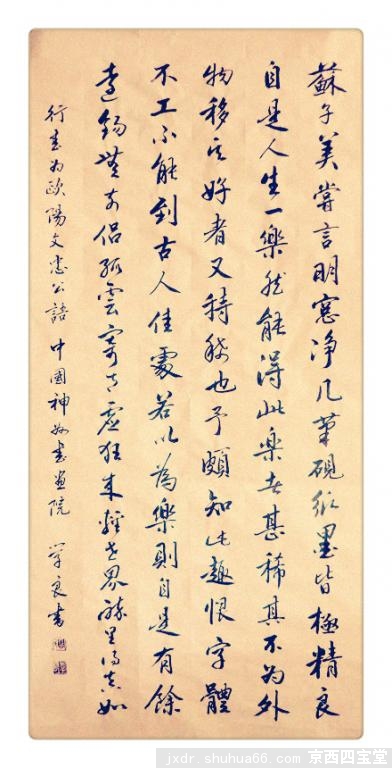 蘇子美嘗言明窓净几筆硯紙墨皆極精良
自是人生一樂然能得此樂者甚稀其不為外
物移其好者又特稀也予頗知此趣恨字體
不工不能到古人佳處若以為樂則自是有餘
遠錫無前侶孤雲寄太虛狂來輕世界醉里得真如
行書為歐陽文忠公語 中國神州書畫院 學良書
jxdr.shuhua66.com 京西四宝堂